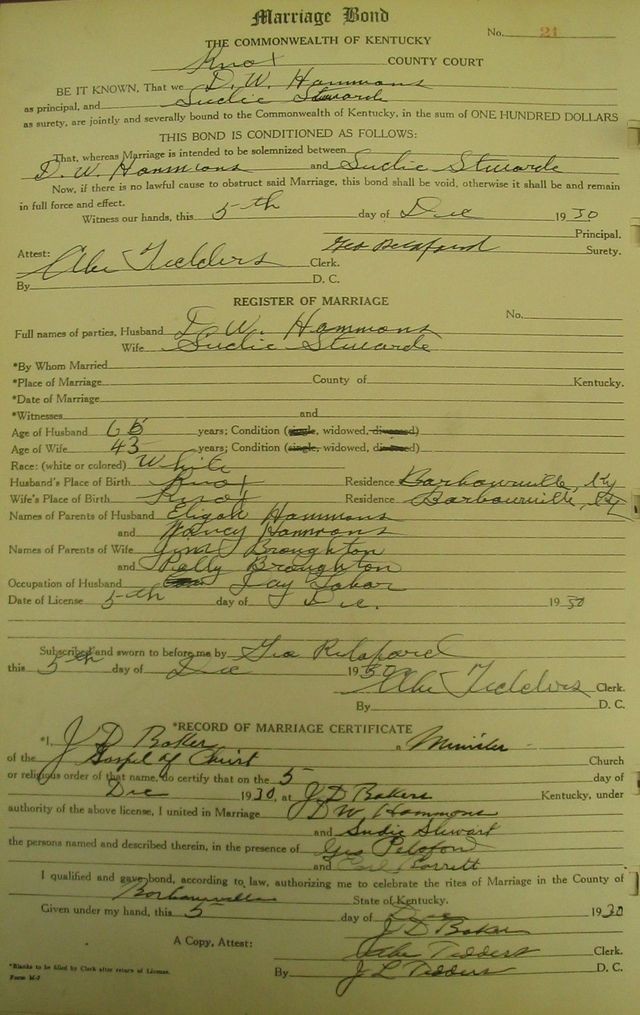 Marriage Bond
No. 21
THE COMMONWEALTH OF KENTUCKY
Knox COUNTY COURT
BE IT KNOWN, That we D. W. Hammons
as principal, and Sudie Stuarde
as surety, are jointly and severally bound to the Commonwealth of Kentucky, in the sum of ONE HUNDRED DOLLARS
THIS BOND IS CONDITIONED AS FOLLOWS:
That, whereas Marriage is intended to be solemnized between
D. W. Hammons and Sudie Stuarde
Now, if there is no lawful cause to obstruct said Marriage, this bond shall be void, otherwise it shall be and remain
in full force and effect.
Witness our hands, this 5th day of Dec 1930
Principal.
Attest: Geo Surety.
Abe Tidders Clerk.
By D. C.
REGISTER OF MARRIAGE
No.
Full names of parties, Husband D. W. Hammons
Wife Sudie Stuarde
*By Whom Married
*Place of Marriage County of Kentucky.
*Date of Marriage
*Witnesses and
Age of Husband 65 years; Condition (single, widowed, divorced)
Age of Wife 43 years; Condition (single, widowed, divorced)
Race: (white or colored) White
Husband's Place of Birth Knox Residence Barbourville, Ky
Wife's Place of Birth Knox Residence Barbourville, Ky
Names of Parents of Husband Eligah Hammons
and Nancy Hammons
Names of Parents of Wife Jim Broughton
and Polly Broughton
Occupation of Husband Day Labor
Date of License 5th day of Dec. 1930
Subscribed and sworn to before me by Geo
this 5th day of Dec 1930
Abe Tidders Clerk.
By D. C.
*RECORD OF MARRIAGE CERTIFICATE
*I, J D Baker a Minister
of the Gospel of Christ Church
or religious order of that name, do certify that on the 5 day of
Dec 1930, at J. D Bakers Kentucky, under
authority of the above license, I united in Marriage D W Hammons
and Sudie Stewart
the persons named and described therein, in the presence of Geo
and Barrett
I qualified and gave bond, according to law, authorizing me to celebrate the rites of Marriage in the County of
Barbourville State of Kentucky.
Given under my hand, this 5 day of Dec 1930
J D Baker
A Copy, Attest: Abe Tidders Clerk.
By J L Tidders D. C.
*Blanks to be filled by Clerk after return of License.
Form M-7